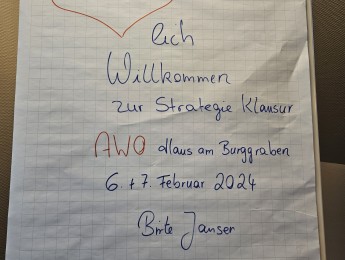 lich
Willkommen
zur Strategie Klausur
AWO Haus am Burggraben
6. + 7. Februar 2024
Birte Janser